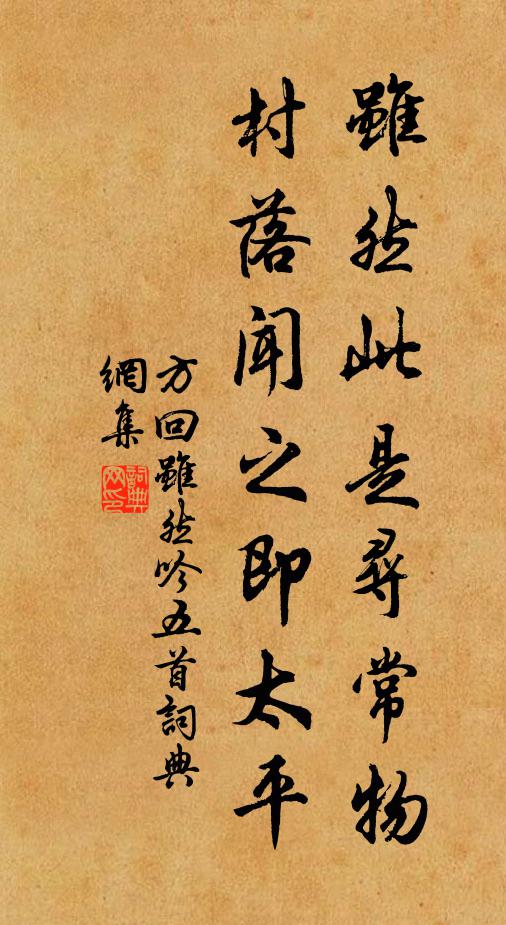 雖然此是尋常物
村落聞之即太平
方回雖然吟五首詞典
網集
詞典網印